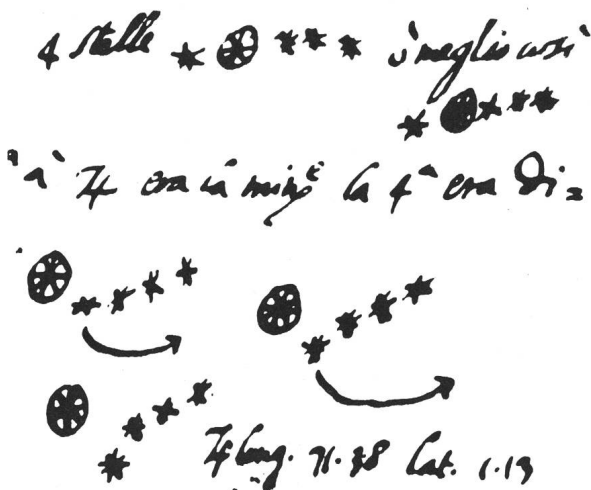 4 stelle ò meglio così
à ♃ era la minͤ la 4ᵃ era di=
♃ long. 71.38 lat. 1.13